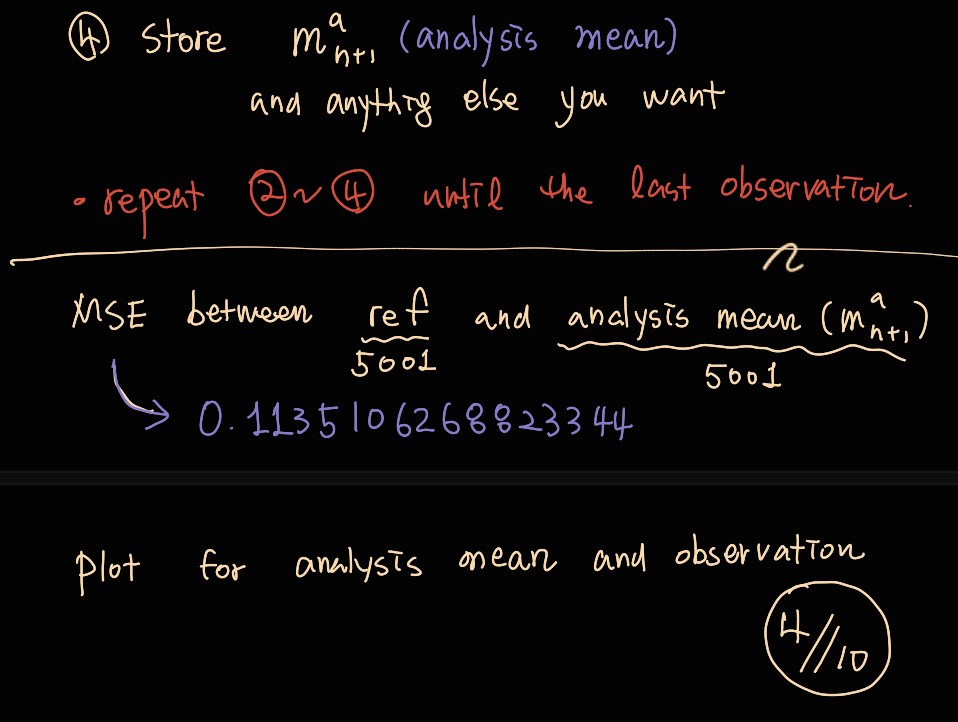 ④ store m^a_{n+1} (analysis mean)
and anythig else you want
• repeat ②~④ until the last observation.
MSE between ref and analysis mean (m^a_{n+1})
5001 5001
→ 0.1135106268823344
plot for analysis mean and observation
4//10